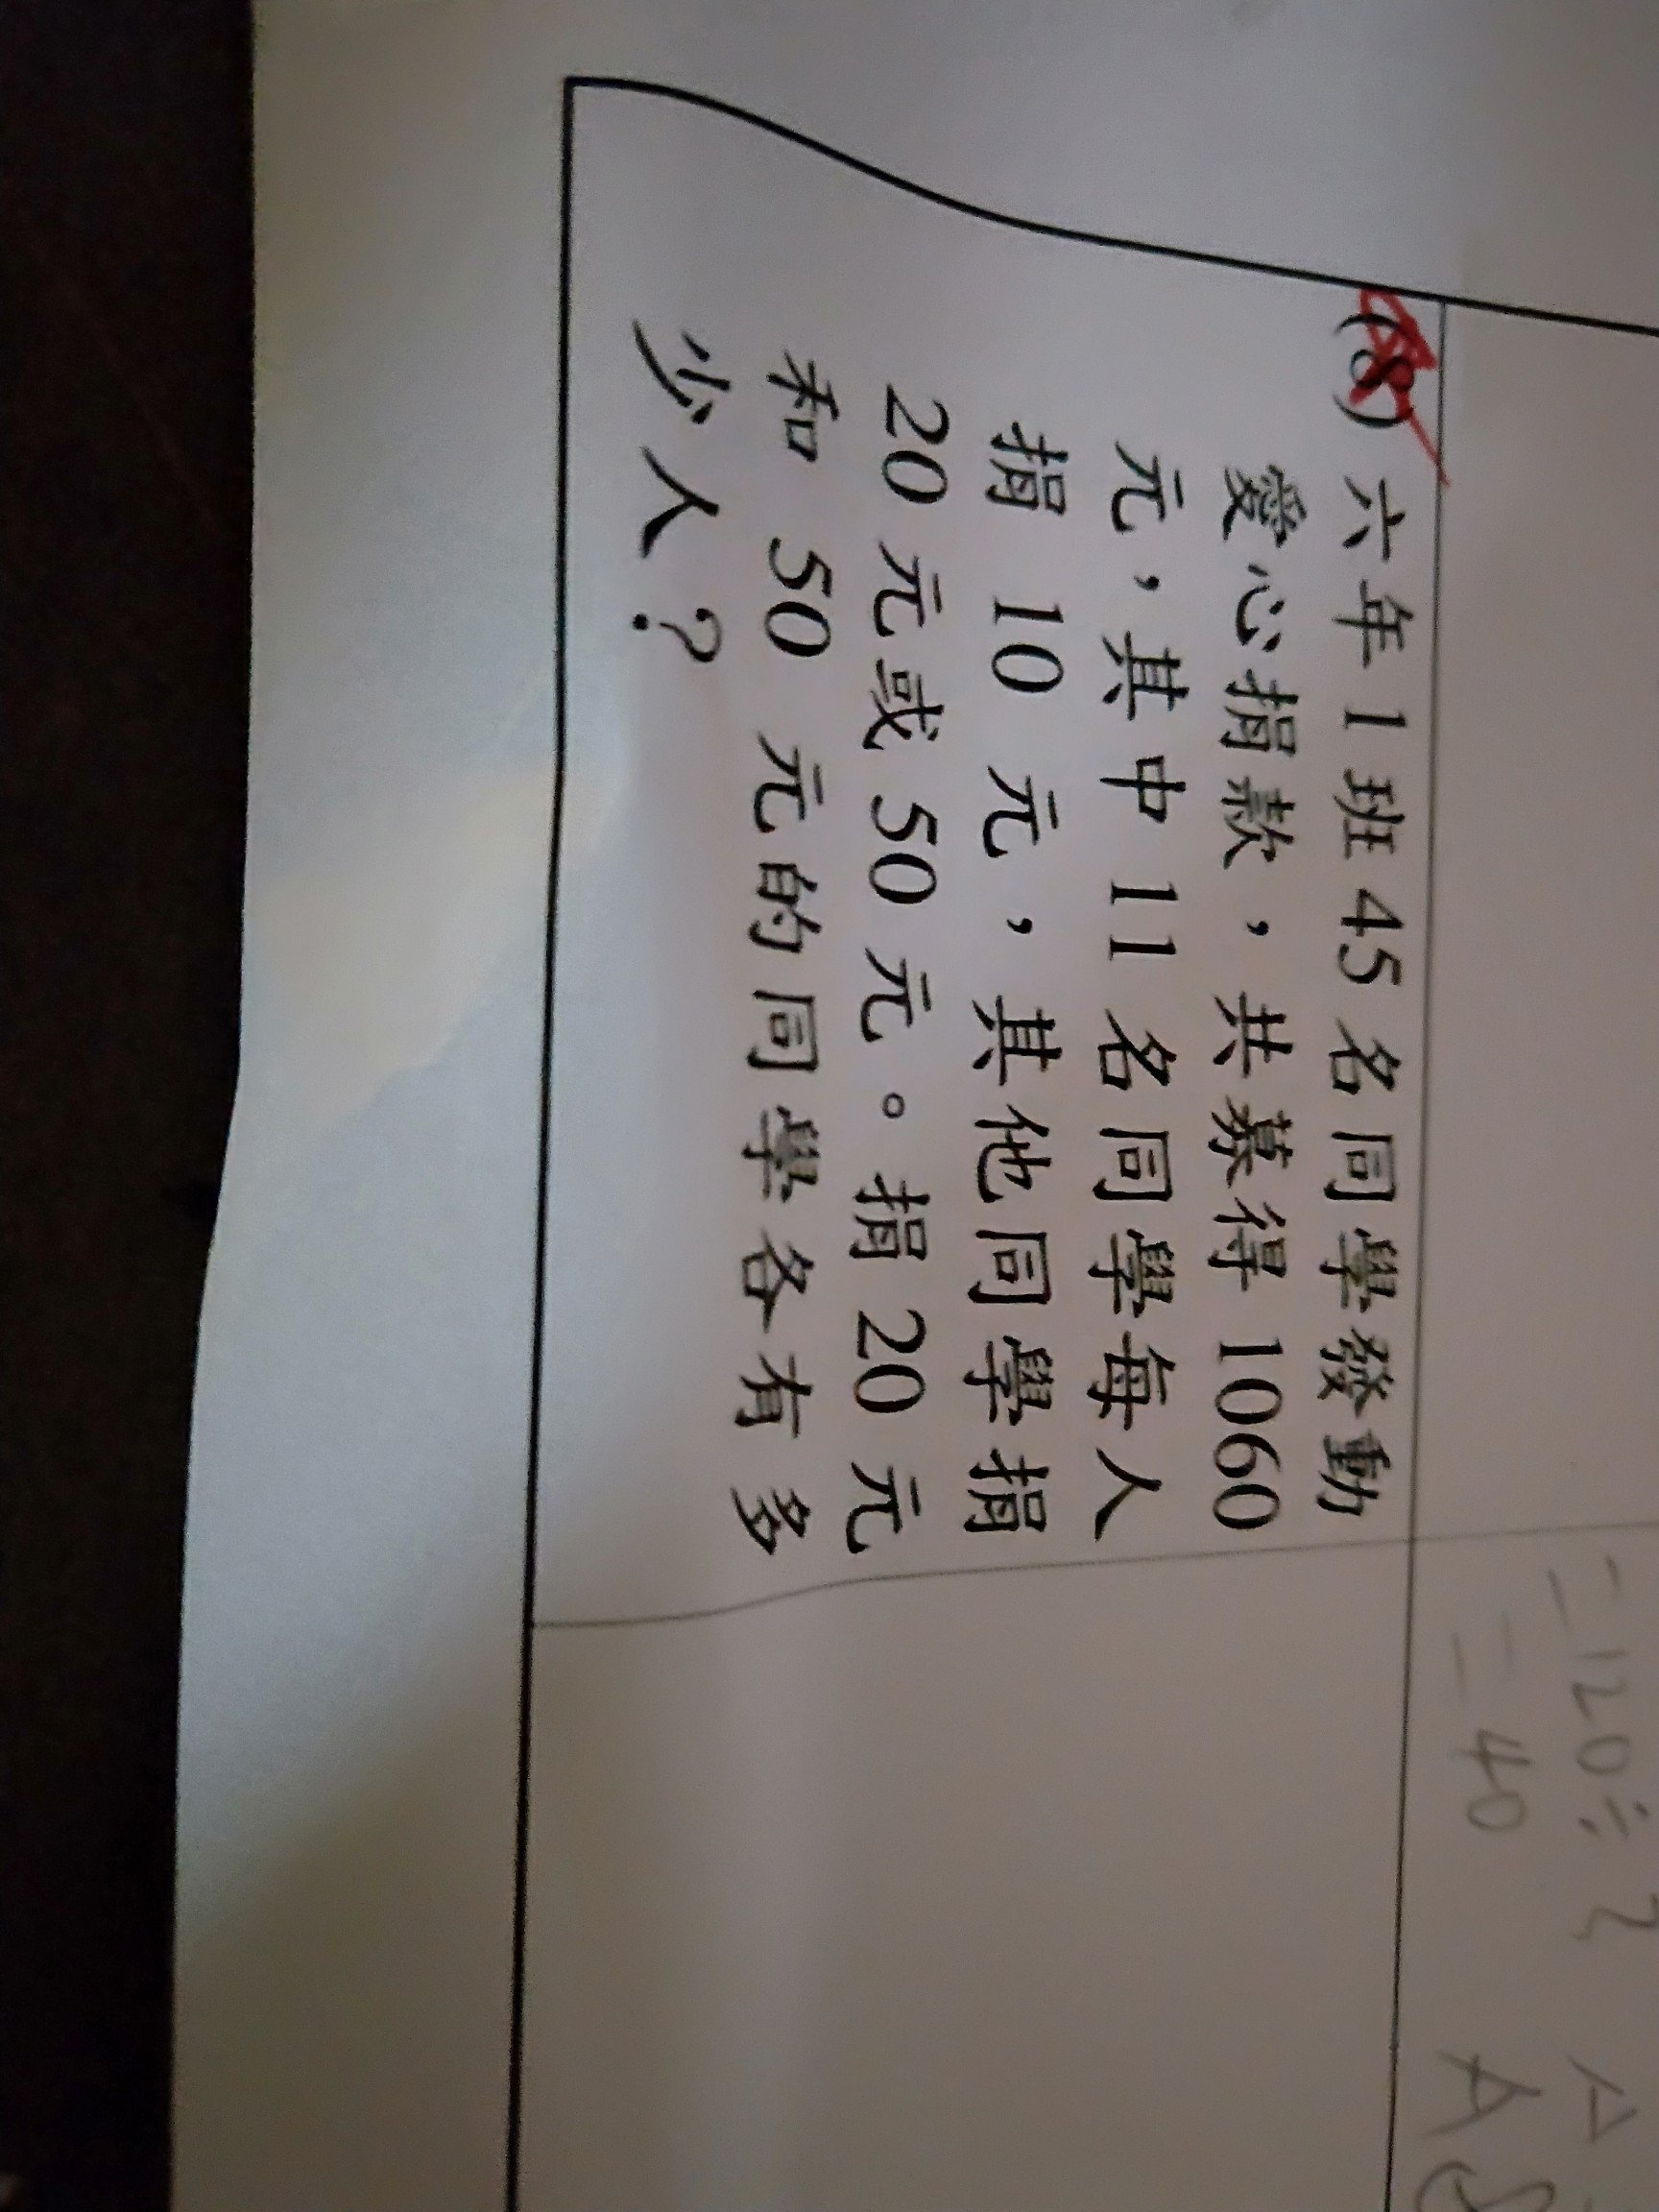 (8) 六年1班45名同學發動
愛心捐款，共募得1060
元，其中11名同學每人
捐 10 元，其他同學捐
20元或50元。捐20元
和 50 元的同學各有多
少人？
=120÷
=40
A